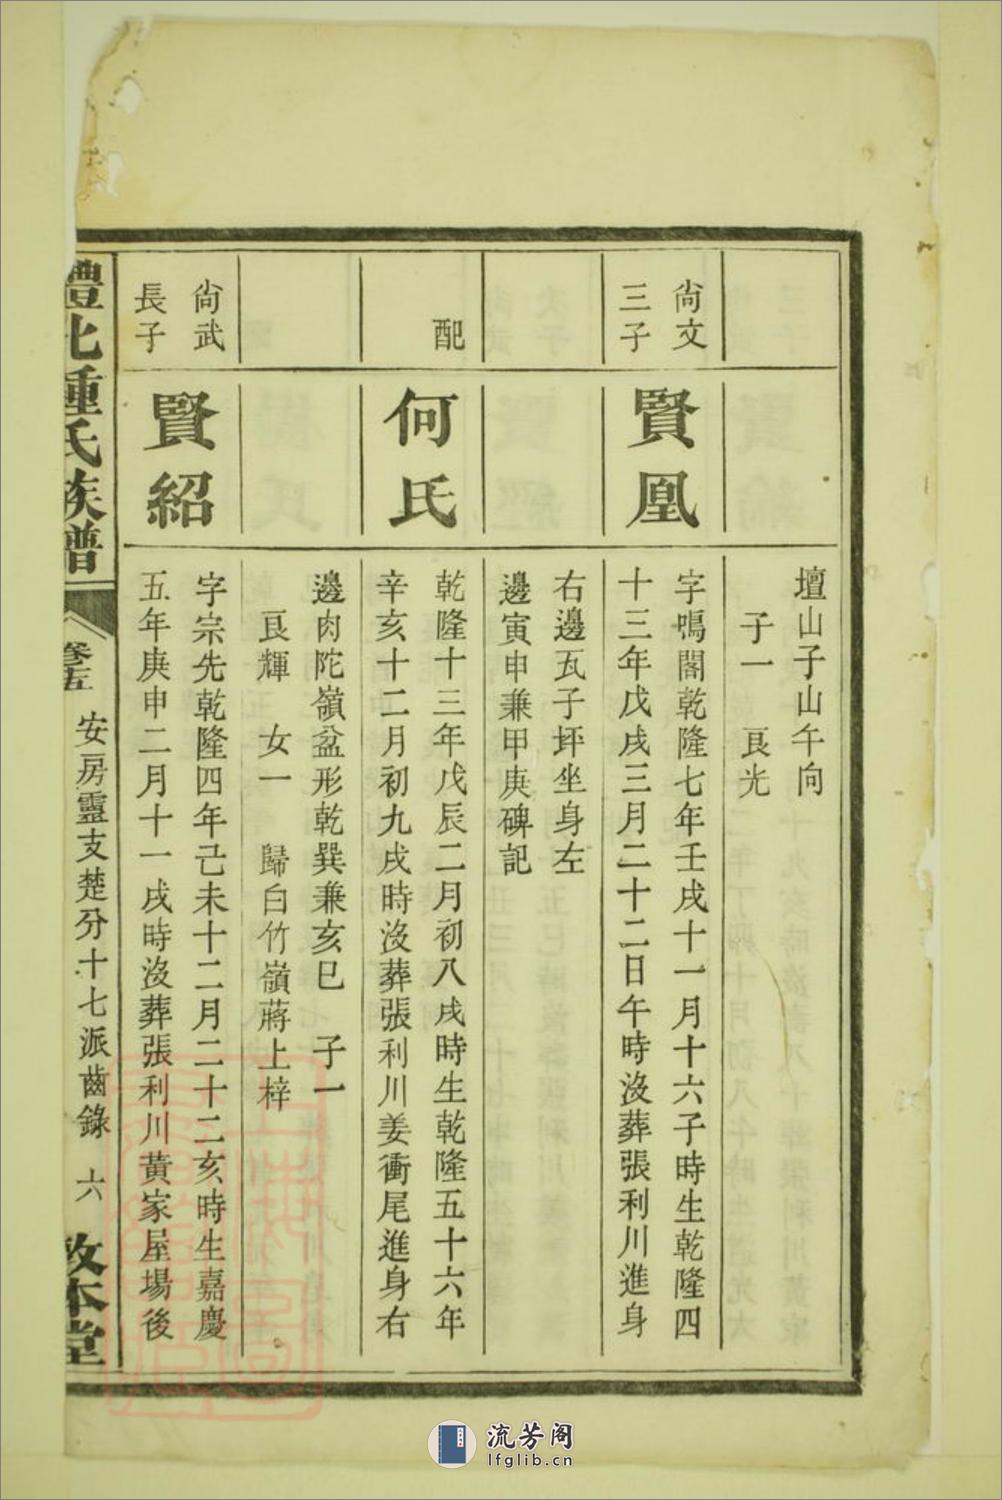 壇山子山午向
子一　良光
尙文
三子
賢凰
字鳴閣乾隆七年壬戌十一月十六子時生乾隆四
十三年戊戌三月二十二日午時沒葬張利川進身
右邊瓦子坪坐身左
邊寅申兼甲庚碑記
配
何氏
乾隆十三年戊辰二月初八戌時生乾隆五十六年
辛亥十二月初九戌時沒葬張利川姜衝尾進身右
邊肉陀嶺盆形乾巽兼亥巳　子一
良輝　女一　歸白竹嶺蔣上梓
尙武
長子
賢紹
字宗先乾隆四年己未十二月二十二亥時生嘉慶
五年庚申二月十一戌時沒葬張利川黃家屋場後
澧北鍾氏族譜
卷五
安房靈支楚分十七派齒錄　六
敦本堂
流芳阁
lfglib.cn